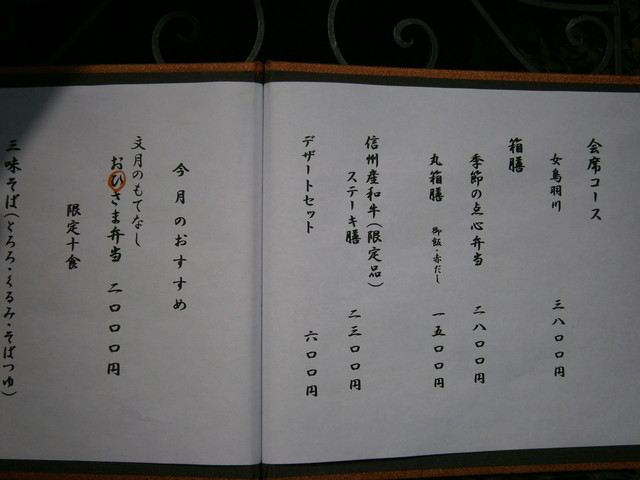 会席コース
女鳥羽川 三八〇〇円
箱膳
季節の点心弁当 二八〇〇円
丸箱膳 御飯・赤だし 一五〇〇円
信州産和牛(限定品)
ステーキ膳 二三〇〇円
デザートセット 六〇〇円
今月のおすすめ
文月のもてなし
おひさま弁当 二〇〇〇円
限定十食
三味そば(とろろ・くるみ・そばつゆ)